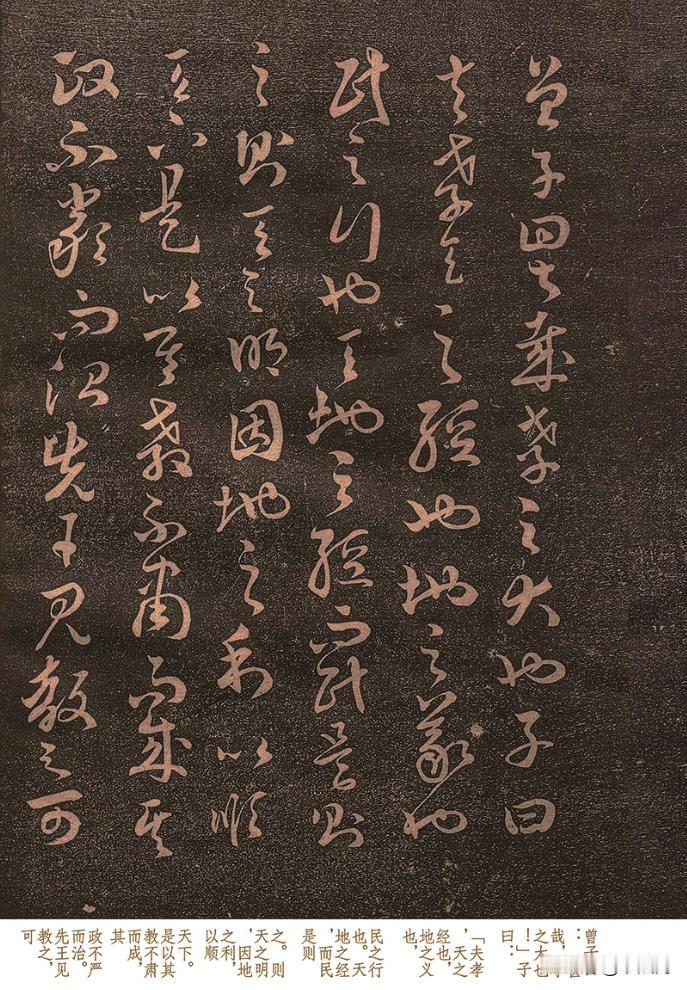 曾子曰甚哉孝之大也子曰
夫孝天之經也地之義也
民之行也天地之經而民是則
之則天之明因地之利以順
天下是以其教不肅而成其
政不嚴而治先王見教之可
曾子
：甚
哉，
之大也
！」子
曰：
「夫孝
，天之
經也，
地之義
也，
民之行
也。天
地之經
，而民
是則
之。則
天之明
，因地
之利，
以順
天下。
是以其
教不肅
而成，
其
政不嚴
而治。
先王見
教之，
可